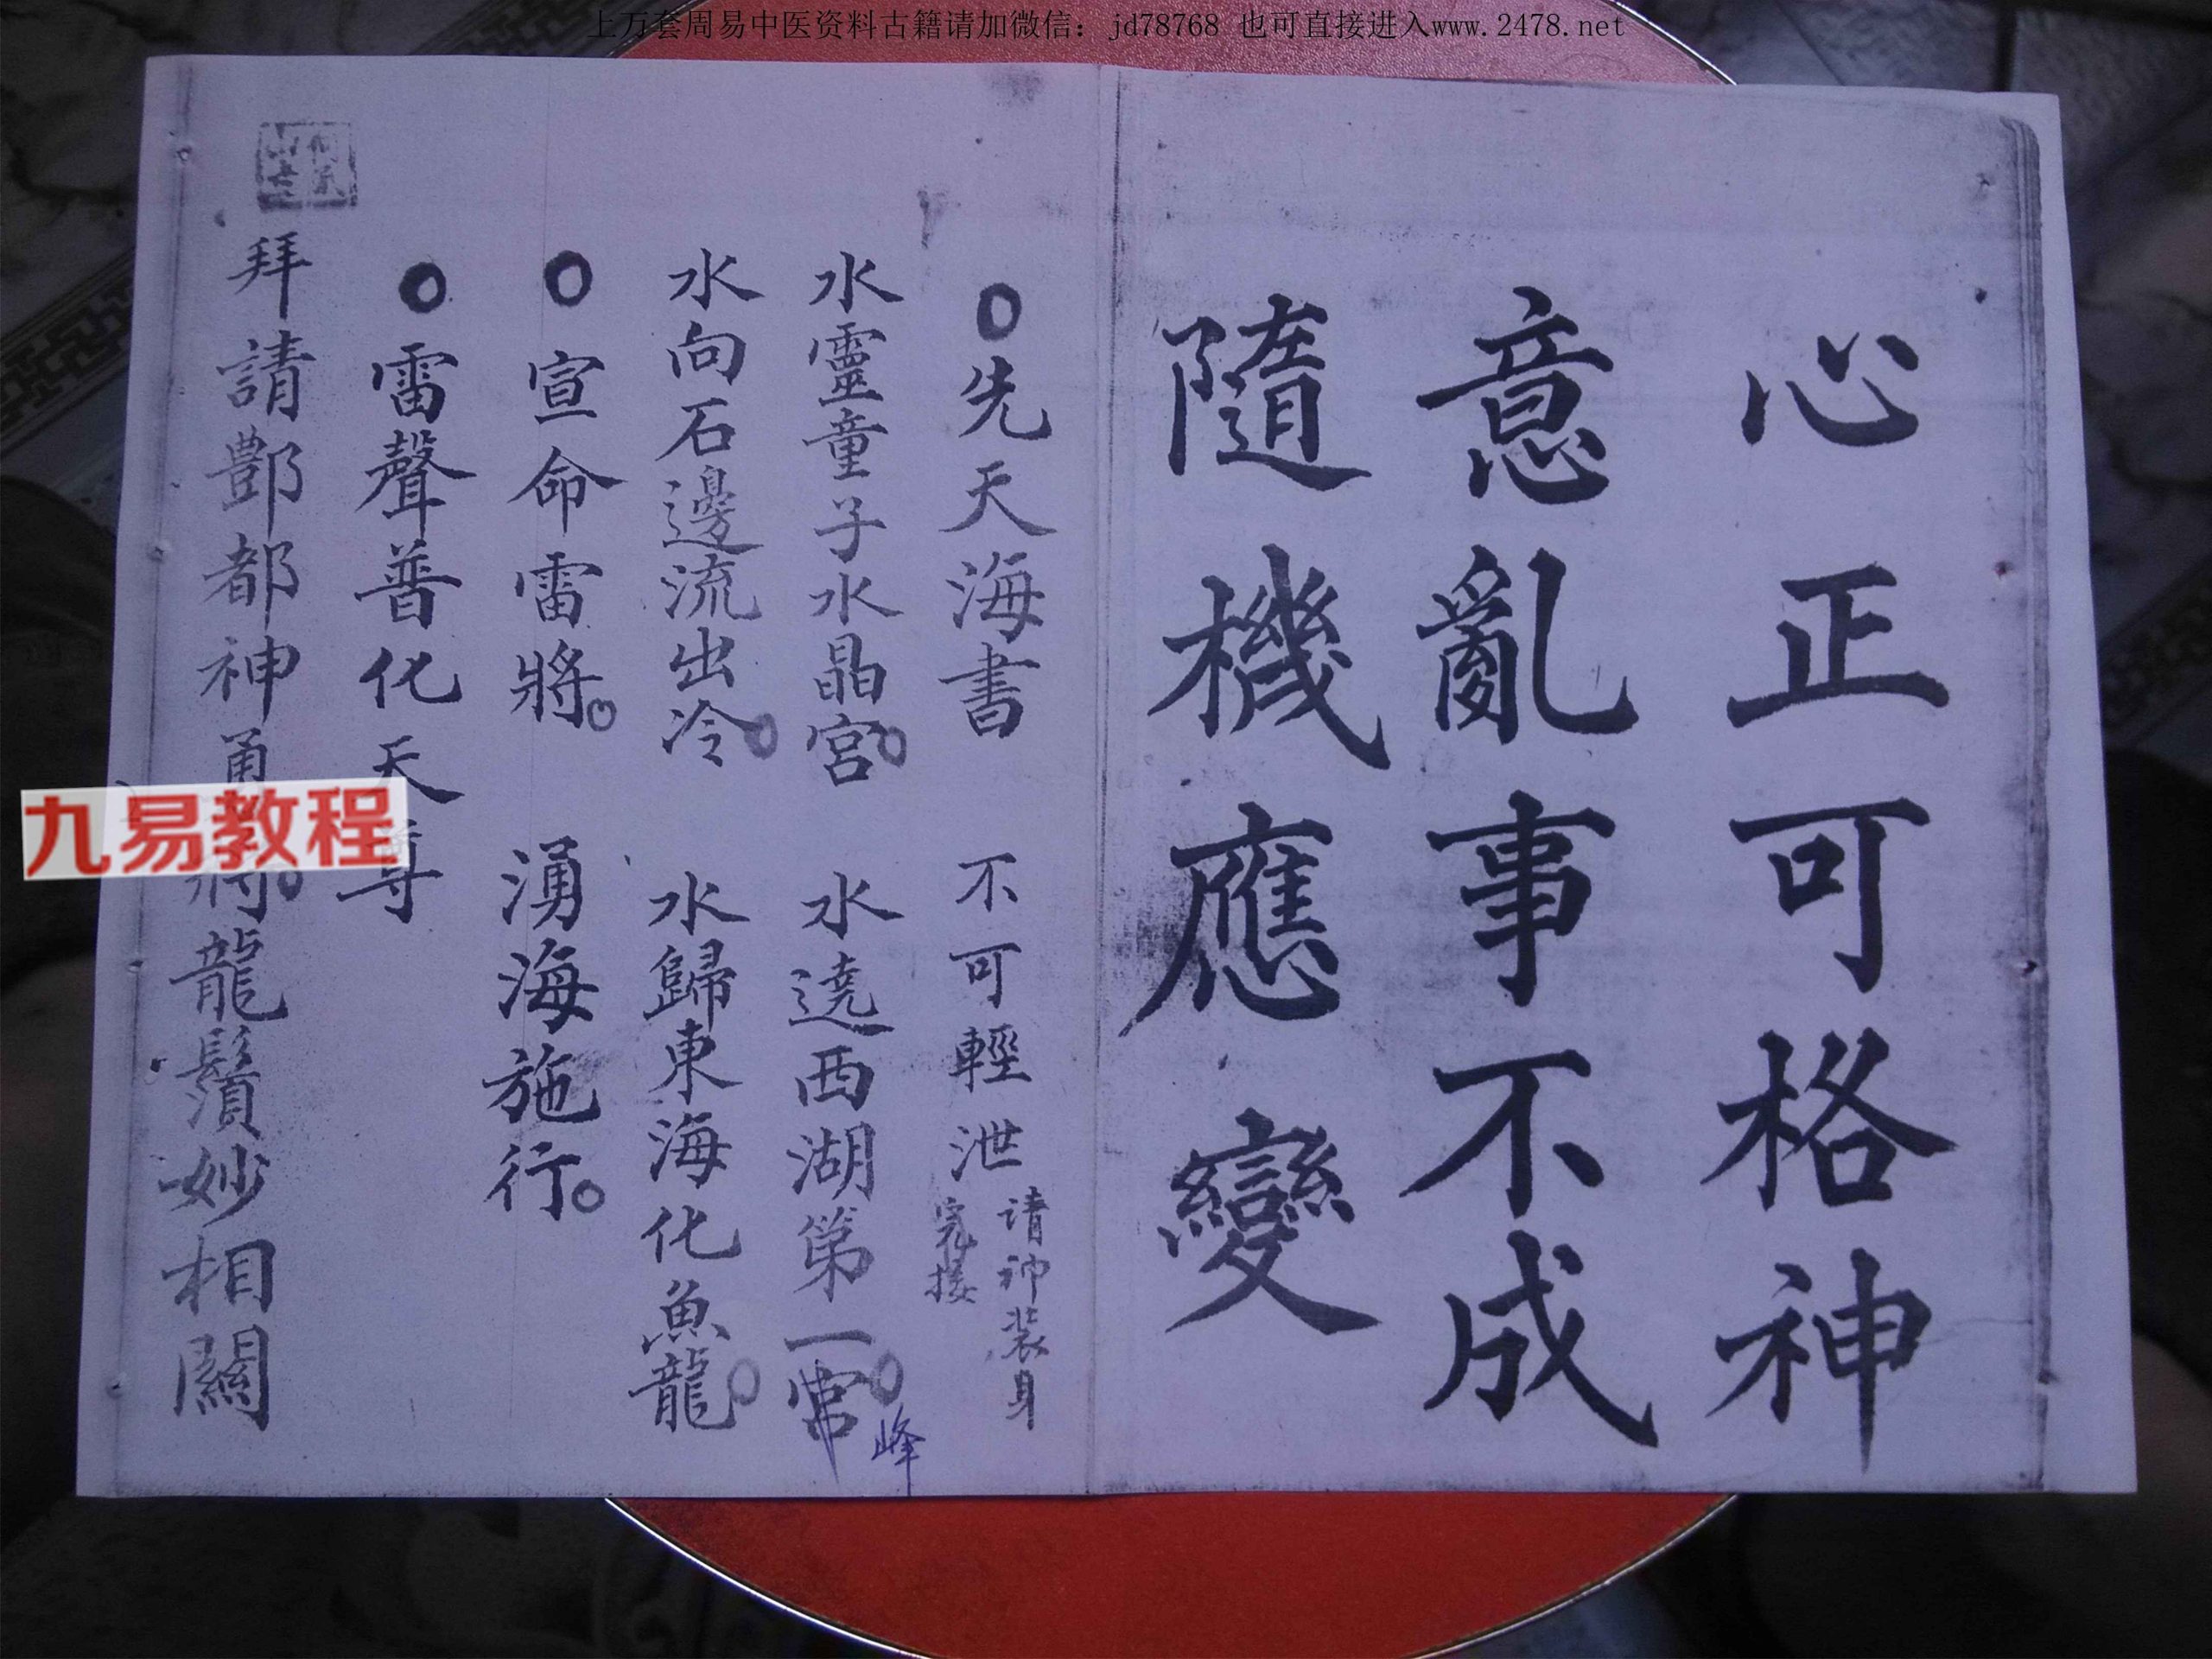 上万套周易中医资料古籍请加微信：jd78768 也可直接进入www.2478.net
心正可格神
意亂事不成
隨機應變
先天海書 不可輕泄
請神裝身
完接
水靈童子水晶宮。 水遶西湖第一宮。
峰
水向石邊流出冷。 水歸東海化魚龍。
宣命雷將。 湧海施行。
雷聲普化天尊
拜請酆都神勇將。龍鬚妙相關
九易教程